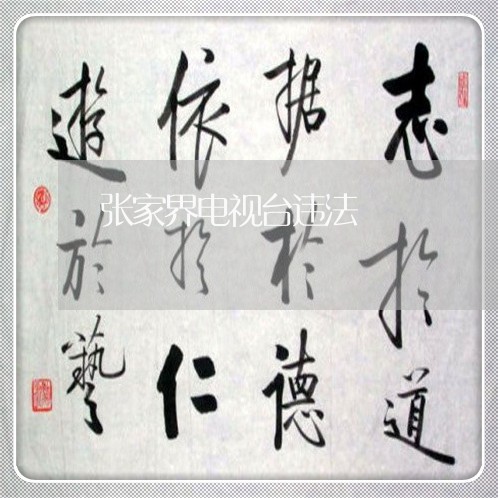 志於道
据於德
依於仁
遊於藝
张家界电视台违法